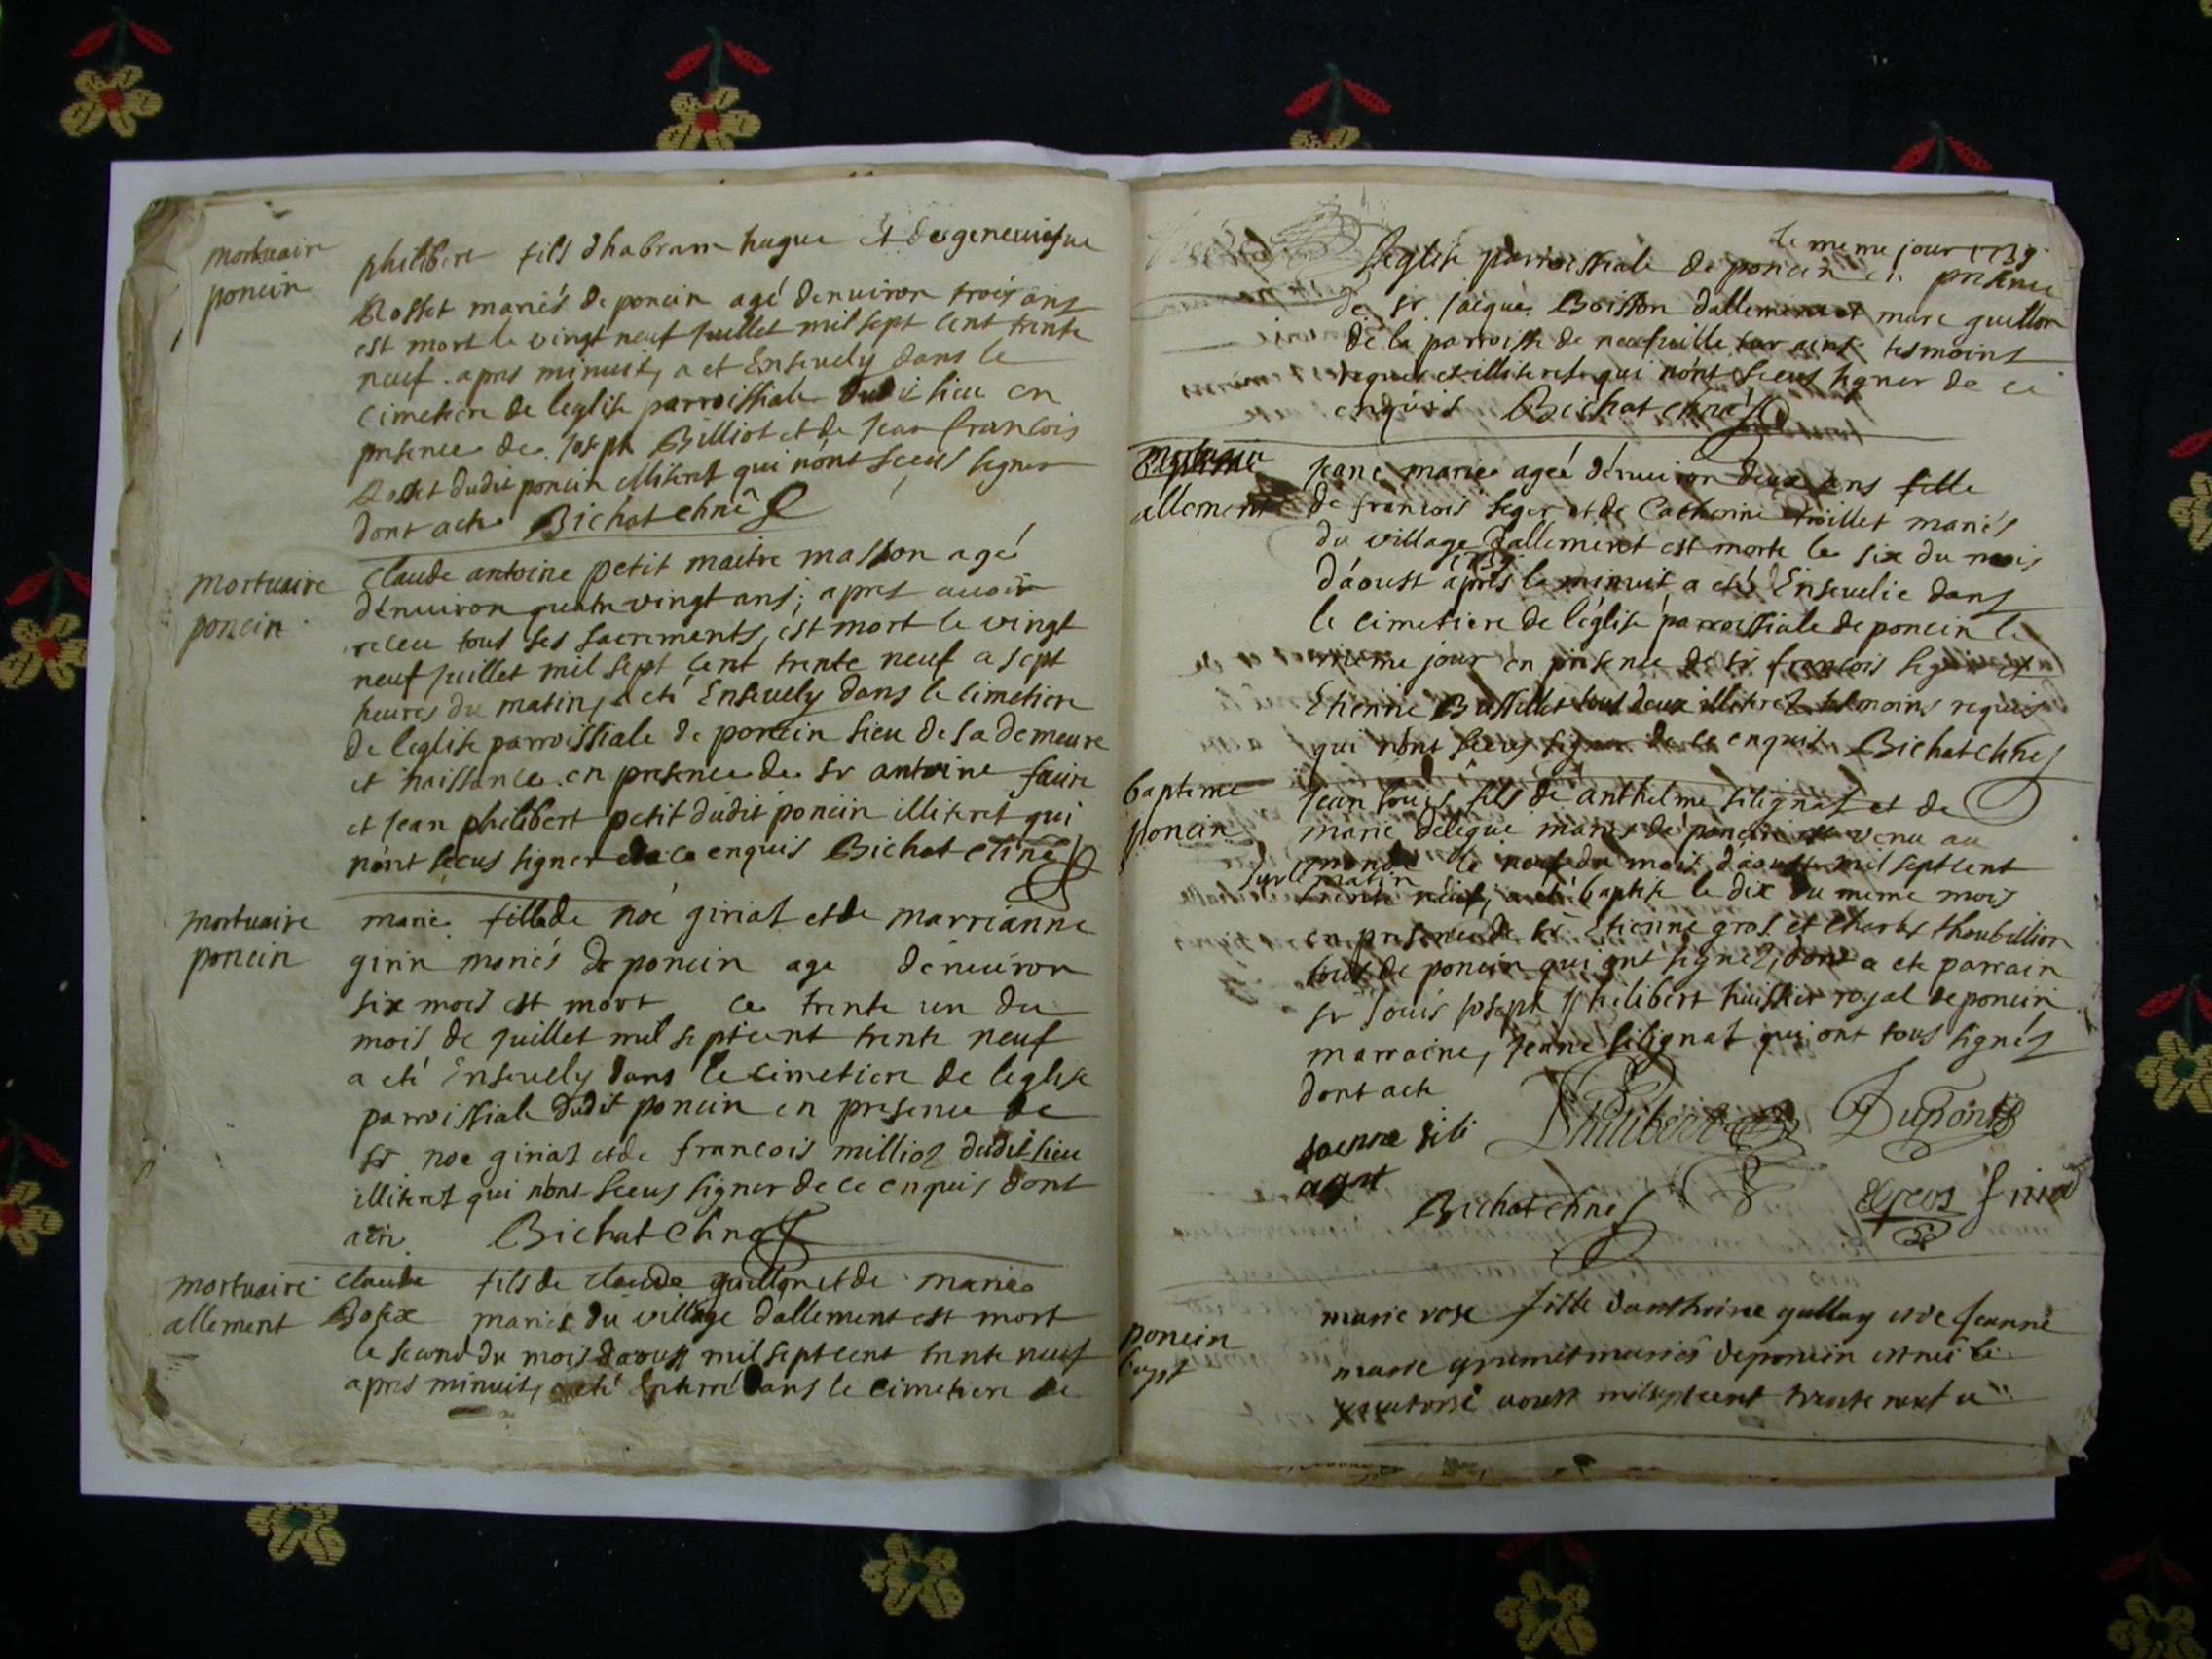 mortuaire
poncin
philibere fils dhabram hugue et de genevieque
Rosset mariés de poncin agé denuiron trois ans
est mort le vingt neuf juillet mil sept cent trente
neuf apres minuit, a eté Enseuely dans le
cimetiere de leglise parroissiale dudit lieu en
presence de joseph Billiot et de jean francois
Rosset dudit poncin illiteret qui n'ont sceus signer
dont acte Bichat chne
mortuaire
poncin
Claude antoine petit maitre masson agé
dénuiron quatre vingt ans; apres auoir
receu tous ses sacrements, est mort le vingt
neuf juillet mil sept cent trente neuf a sept
heures du matin, a eté Enseuely dans le cimetiere
de leglise parroissiale de poncin lieu de sa demeure
et naissance en presence de sr antoine faure
et jean philibert petit dudit poncin illiteret qui
n'ont sceus signer de ce enquis Bichat chne
mortuaire
poncin
marie fille de noé giriat et de marrianne
girin mariés de poncin age dénuiron
six mois est mort le trente un du
mois de juillet mil septcent trente neuf
a eté Enseuely dans le cimetiere de leglise
parroissiale dudit poncin en presence de
sr noe giriat et de francois millioz dudit lieu
illiteret qui n'ont sceus signer de ce enquis dont
acte Bichat chne
mortuaire
allement
claude fils de claude guillon et de marie
Bosex mariés du village d'allement est mort
le second du mois daoust mil septcent trente neuf
apres minuit, a eté Enterré dans le cimetiere de
le meme jour 1739
leglise parroissiale de poncin en presence
de sr jacque Boisson dallement et marc guillon
de la parroisse de neufuille sur ains tesmoins
requis et illiteret qui n'ont sceus signer de ce
enquis Bichat chne
mortuaire
allement
jeane marie ageé dénuiron deux ans fille
de francois seger et de Catherine troillet mariés
du village dallement est morte le six du mois
1739
d'aoust apres le minuit a eté Enseuelie dans
le cimetiere de léglise parroissiale de poncin le
meme jour en presence de sr francois seger et
Etienne Bussillet tous deux illiteret tesmoins requis
qui n'ont sceus signer de ce enquis Bichat chne
bapteme
poncin
jean louis fils de anthelme silignat et de
marie deleque mariés de poncin est venu au
monde le neuf du mois d'aoust mil septcent
sur le matin
trente neuf, a eté baptise le dix du meme mois
en presence de sr Etienne gros et Charles thoubillion
tous de poncin qui ont signez, dont a ete parrain
sr louis joseph philibert huissier royal de poncin
marraine, jeane silignat qui ont tous signés
dont acte
joenne sili
agnt
Philibert Dupont
Bichat chne Egros
poncin
bapt
marie rose fille danthoine gullay et de jeanne
marie grumet mariés de poncin est née le
quatorse aoust mil septcent trente neuf a